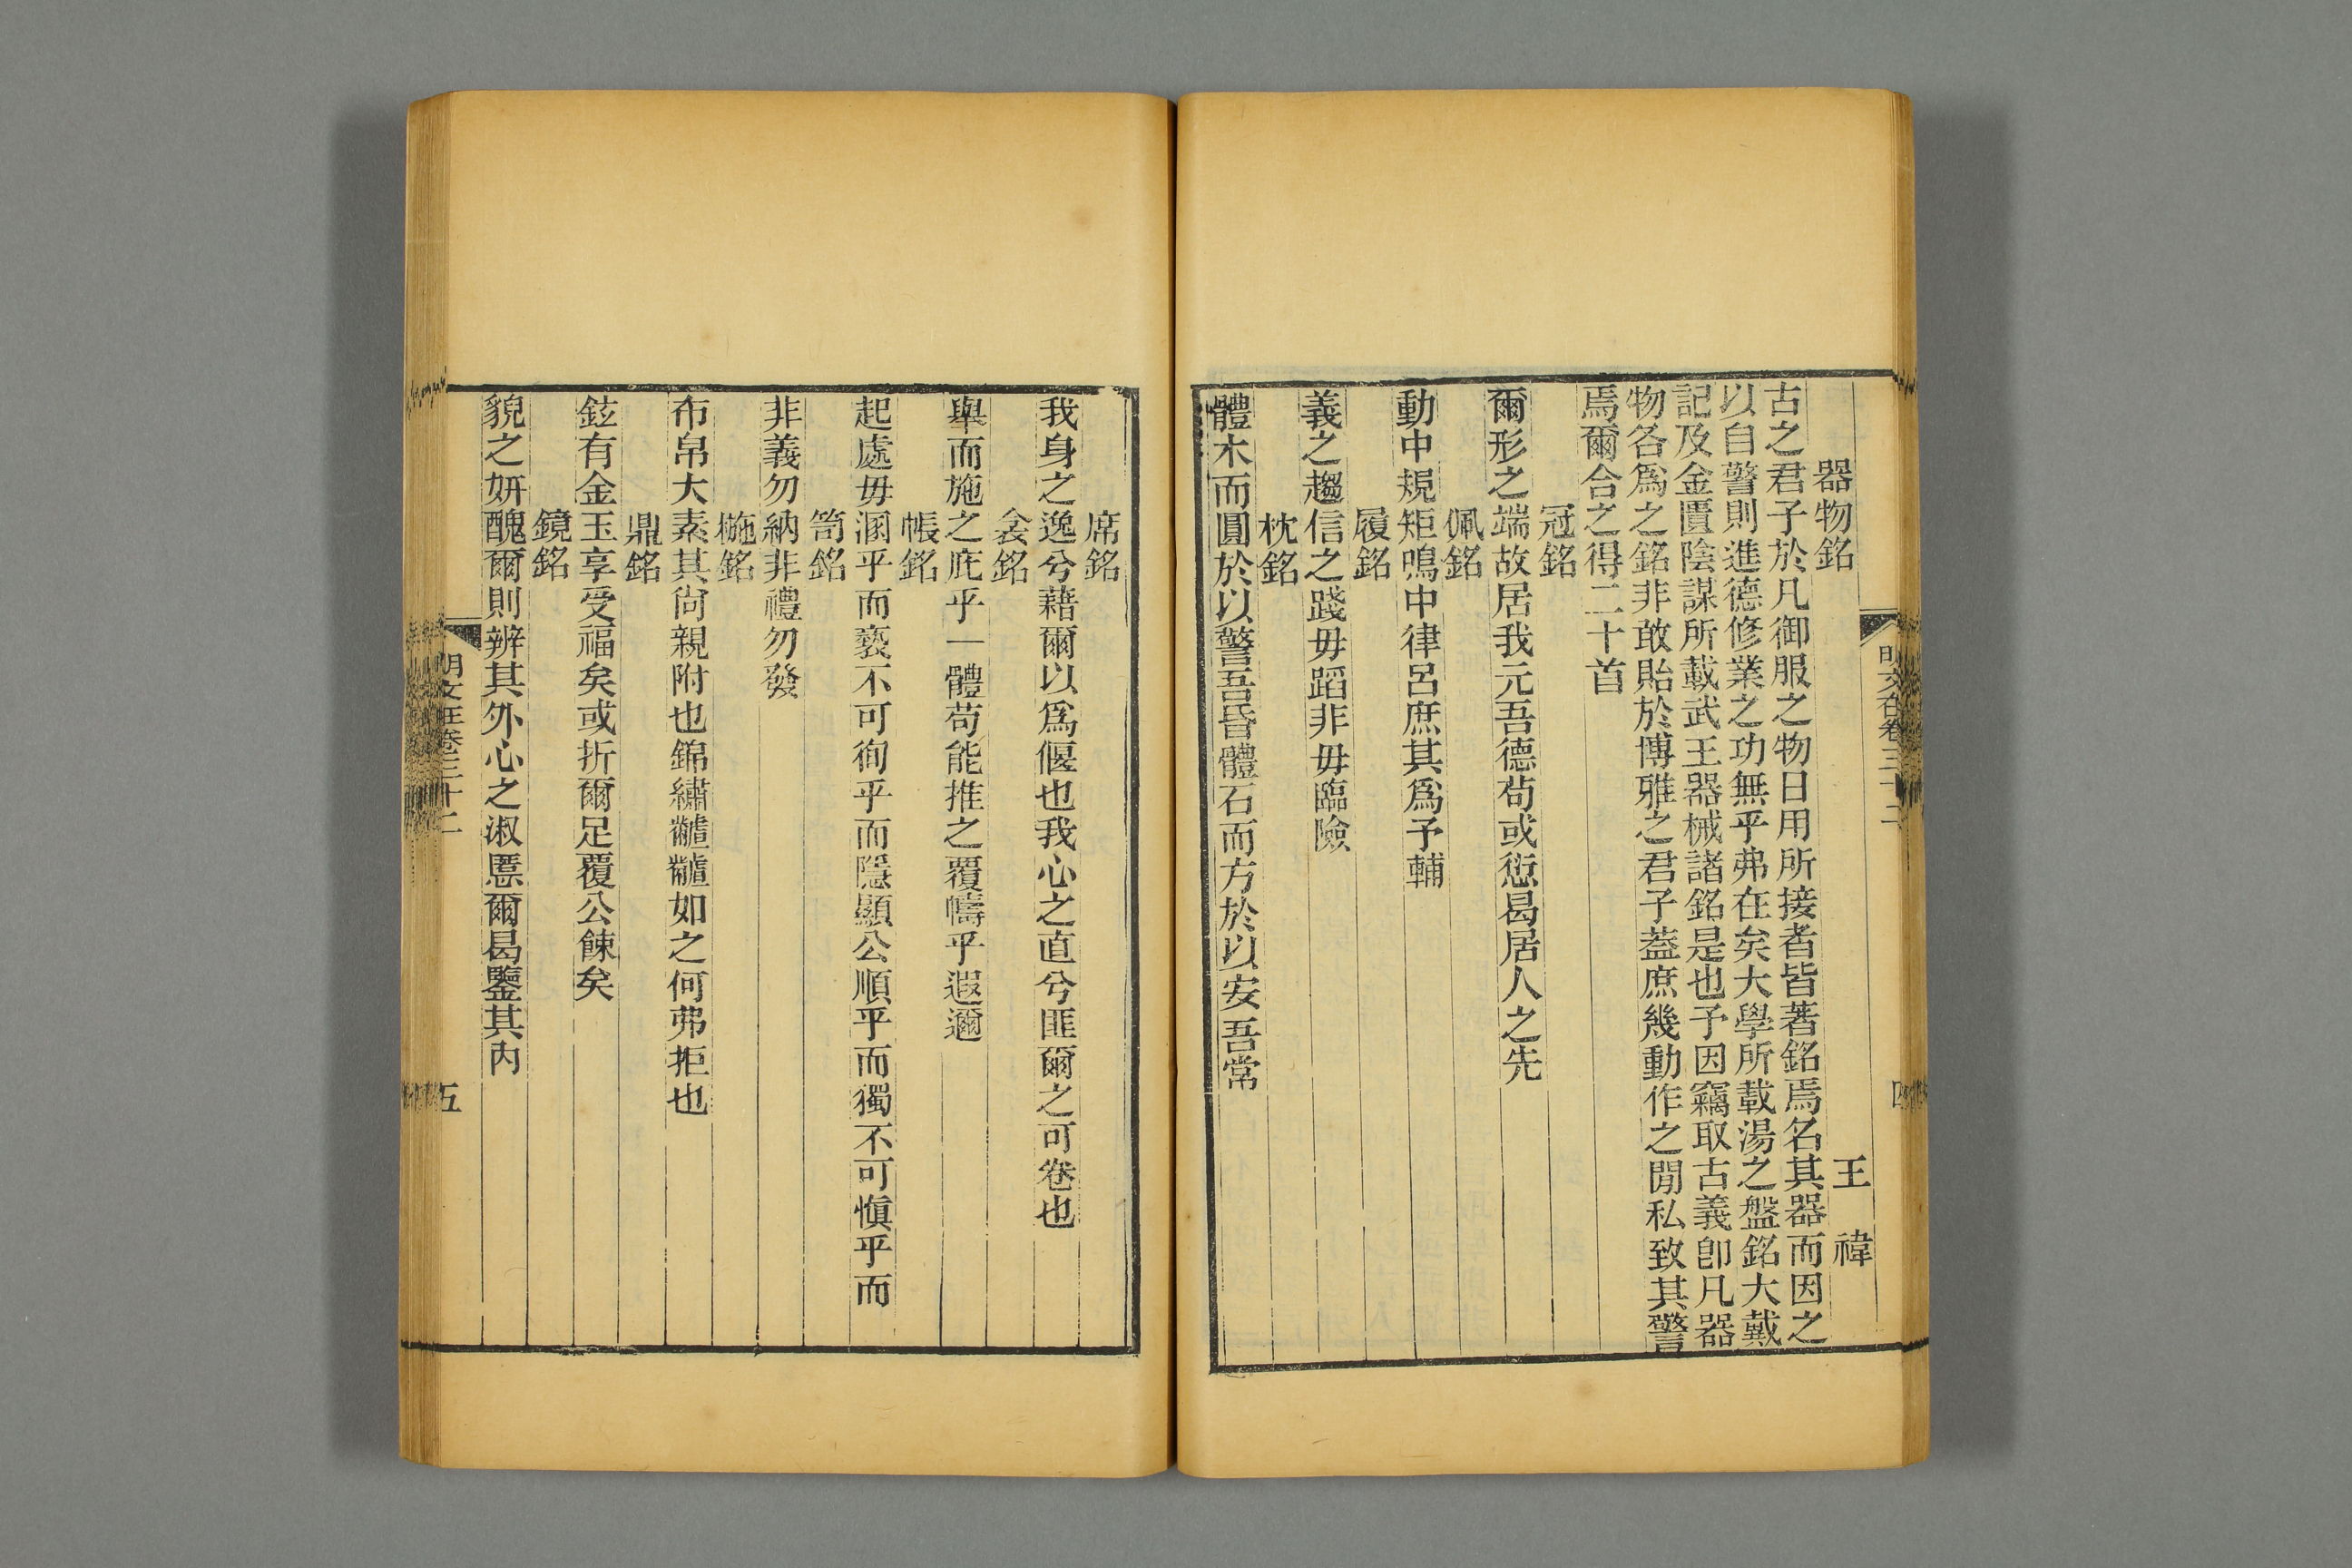 明文在卷三十二
器物銘 王禕
古之君子於凡御服之物日用所接者皆著銘焉名其器而因之
以自警則進德修業之功無乎弗在矣大學所載湯之盤銘大戴
記及金匱陰謀所載武王器械諸銘是也予因竊取古義卽凡器
物各爲之銘非敢貽於博雅之君子葢庶幾動作之閒私致其警
焉爾合之得二十首
冠銘
爾形之端故居我元吾德苟或愆曷居人之先
佩銘
動中規矩鳴中律呂庶其爲予輔
履銘
義之趨信之踐毋蹈非毋臨險
枕銘
體木而圓於以警吾昏體石而方於以安吾常
席銘
我身之逸兮藉爾以爲偃也我心之直兮匪爾之可卷也
衾銘
舉而施之庇乎一體苟能推之覆幬乎遐邇
帳銘
起處毋溷乎而褻不可徇乎而隱顯公順乎而獨不可愼乎而
笥銘
非義勿納非禮勿發
椸銘
布帛大素其尙親附也錦繡黼黻如之何弗拒也
鼎銘
鉉有金玉享受福矣或折爾足覆公餗矣
鏡銘
貌之妍醜爾則辨其外心之淑慝爾曷鑒其內
明文在卷三十二
五